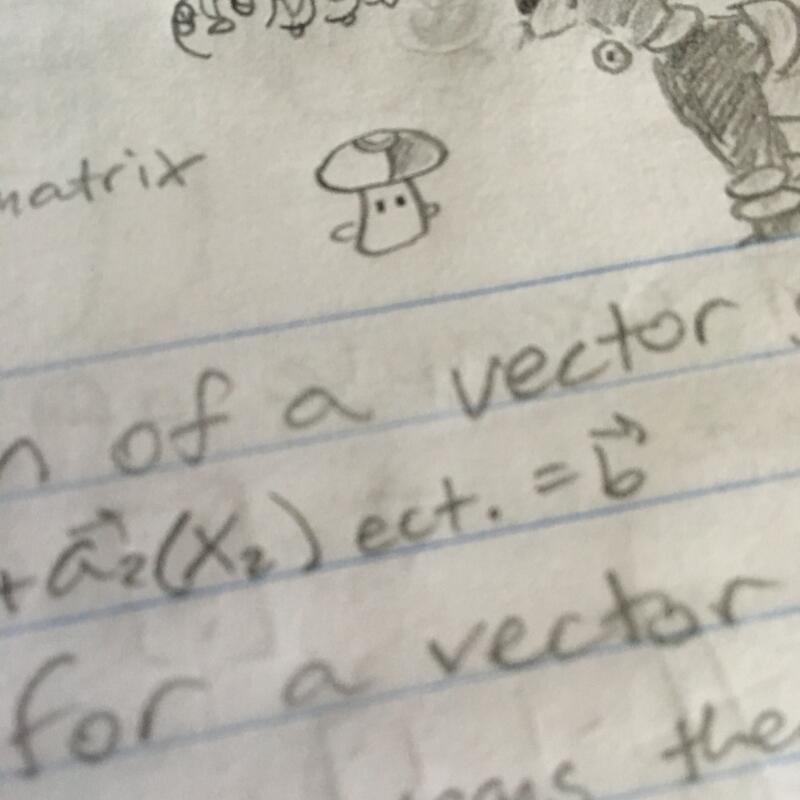 matrix
of a vector
+ a⃗₂(x₂) ect. = b⃗
for a vector
the